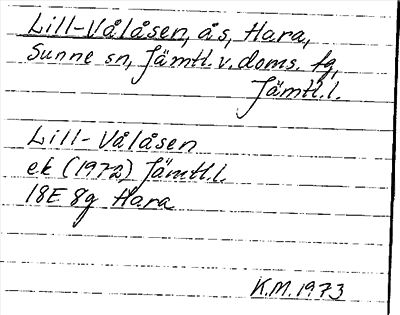 Lill-Vålåsen, ås, Hara,
Sunne sn, Jämtl. v. doms. fg,
Jämtl. l.
Lill-Vålåsen
ek (1972) Jämtl. l.
18E 8g Hara
K.M. 1973